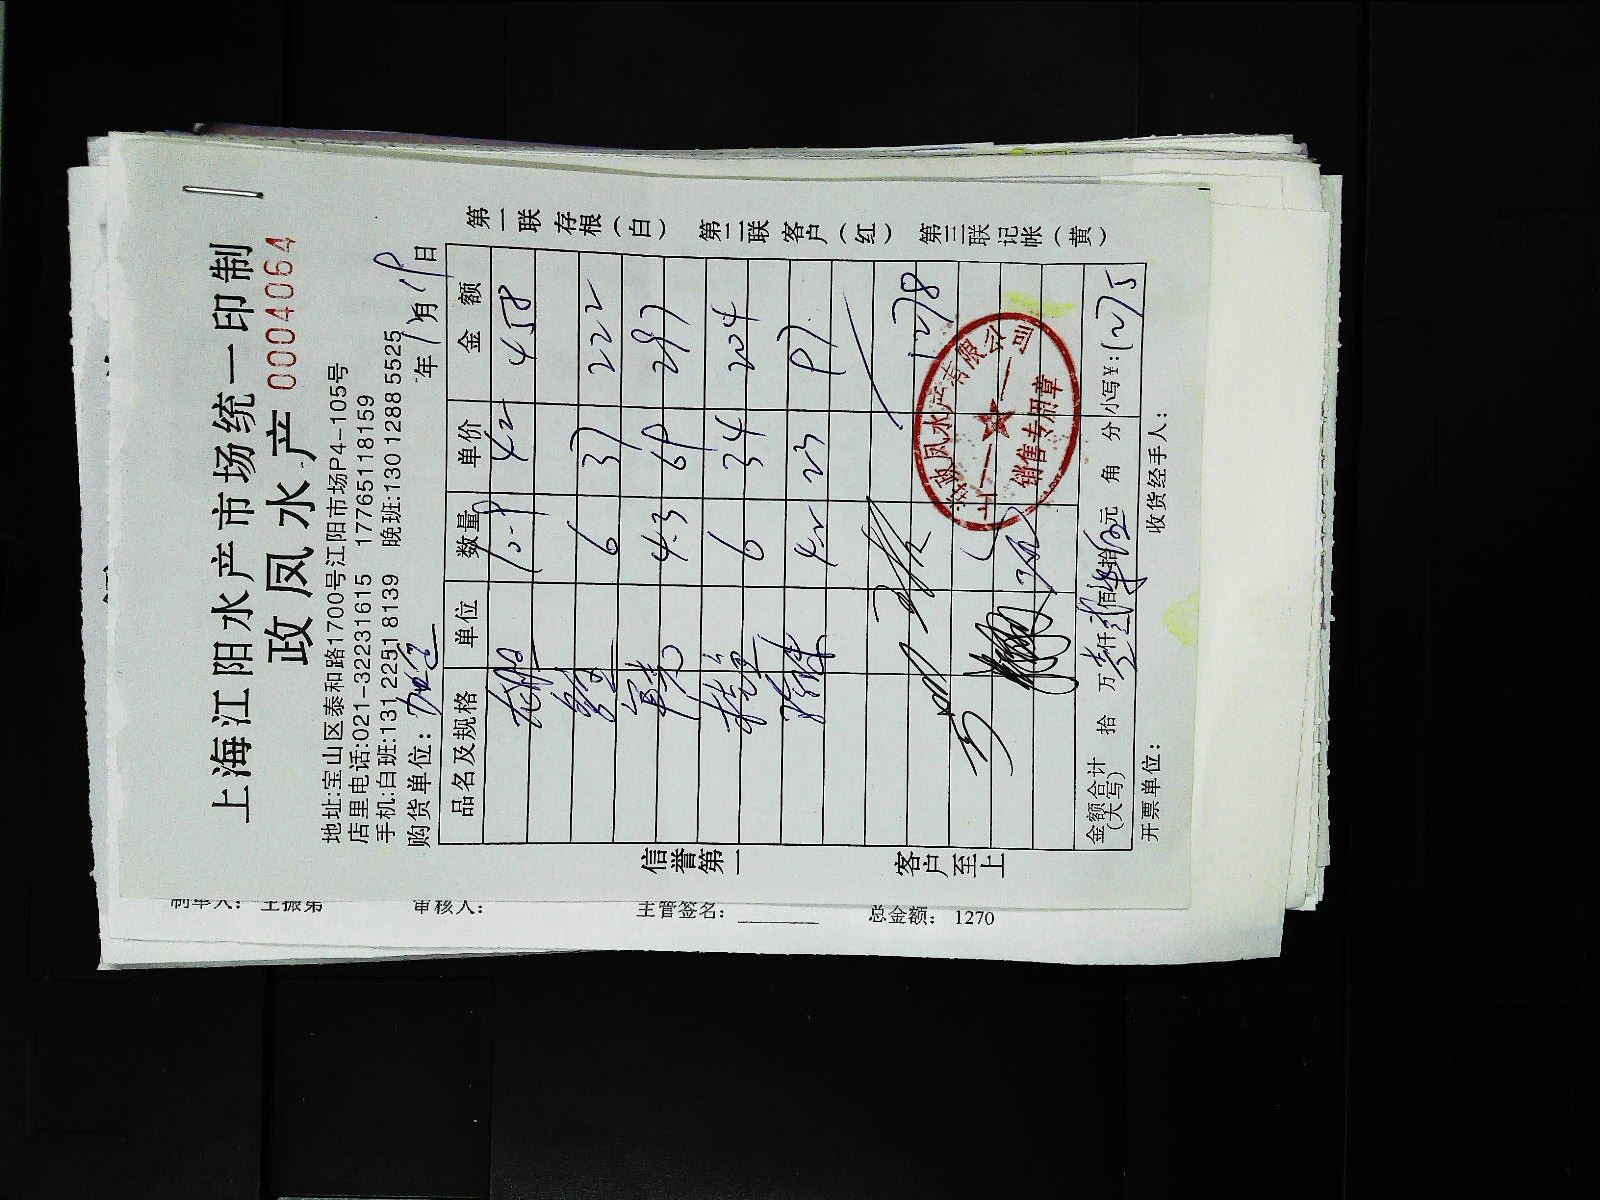 上海江阳水产市场统一印制
政凤水产 0004064
地址:宝山区泰和路1700号江阳市场P4-105号
店里电话:021-32231615 17765118159
手机:白班:131 2251 8139 晚班:130 1288 5525
购货单位: 年 月19日
品名及规格 单位 数量 单价 金额
龙胆 10.9 42 458
6 37 222
4.3 69 297
桂鱼 6 34 204
4.2 23 97
1278
政凤水产有限公司
销售专用章
金额合计(大写) 拾 万壹仟贰佰柒拾伍元 角 分 小写¥:1275
开票单位: 收货经手人:
第一联 存根(白) 第二联 客户(红) 第三联 记帐(黄)
信誉第一 客户至上
制单人: 王振第 审核人: 主管签名: 总金额: 1270